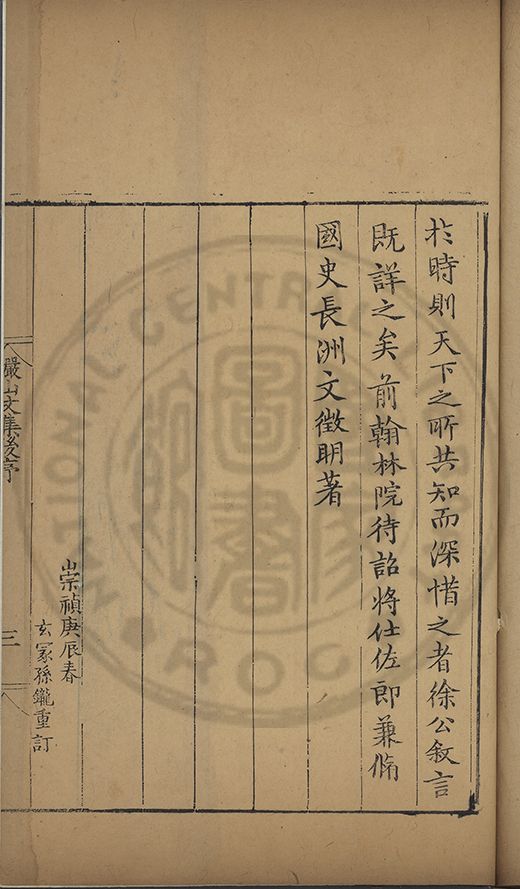 於時則天下之所共知而深惜之者徐公敘言
既詳之矣前翰林院待詔將仕佐郎兼脩
國史長洲文徵明著
崇禎庚辰春
玄冢孫鑨重訂
儼山文集後序
三